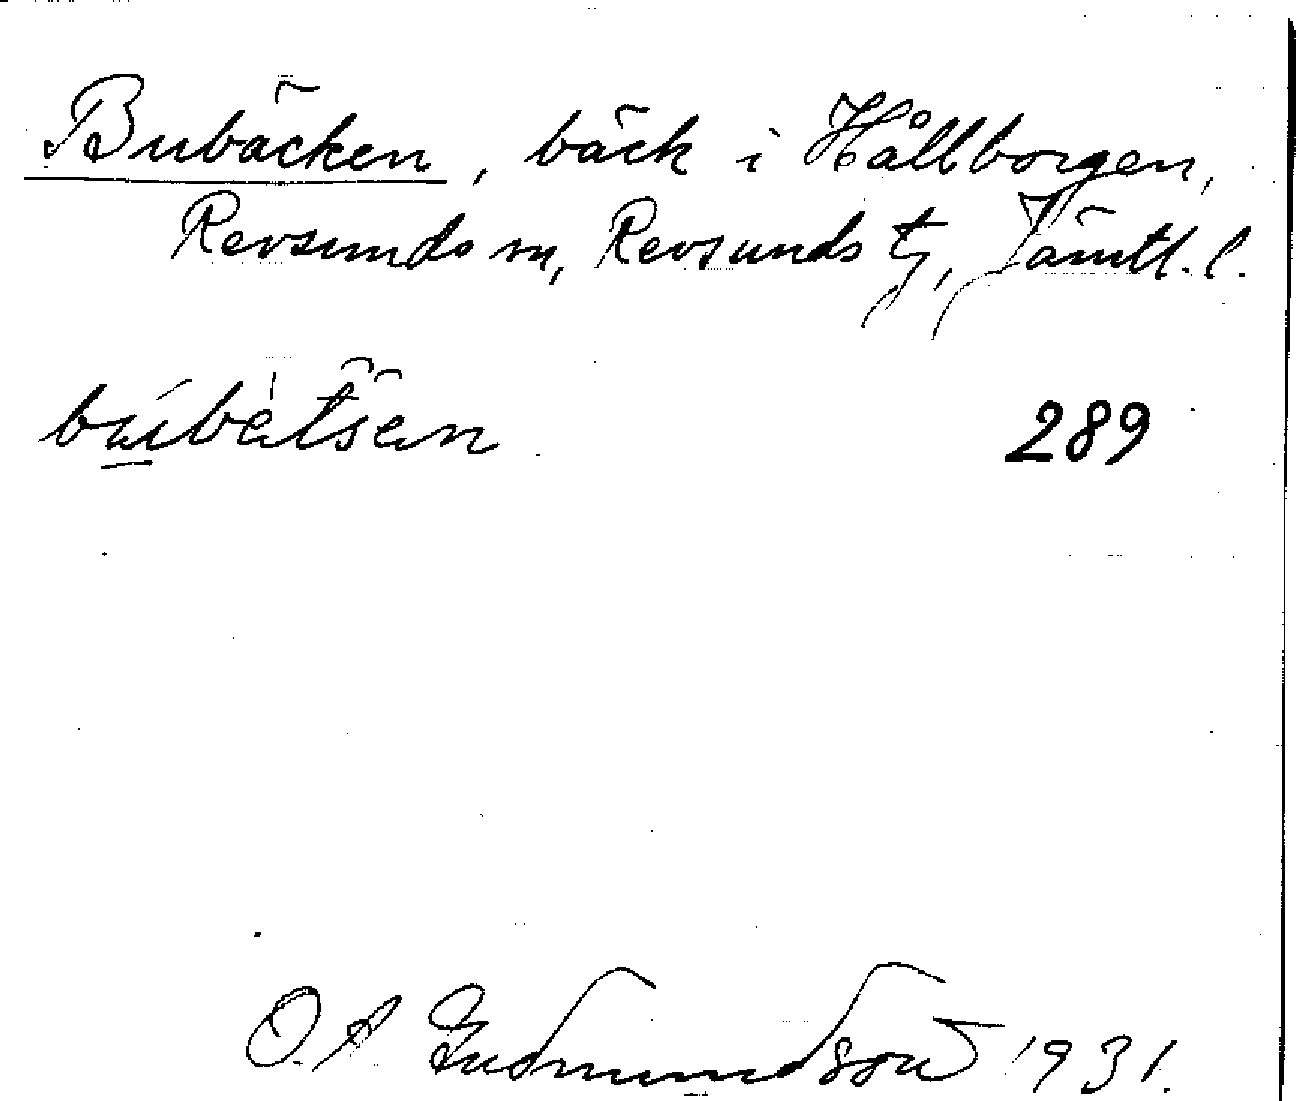 Bubäcken, bäck i Hållborgen,
Revsunds sn, Revsunds tg, Jämtl. l.
289
O. A. Gudmundson 1931.